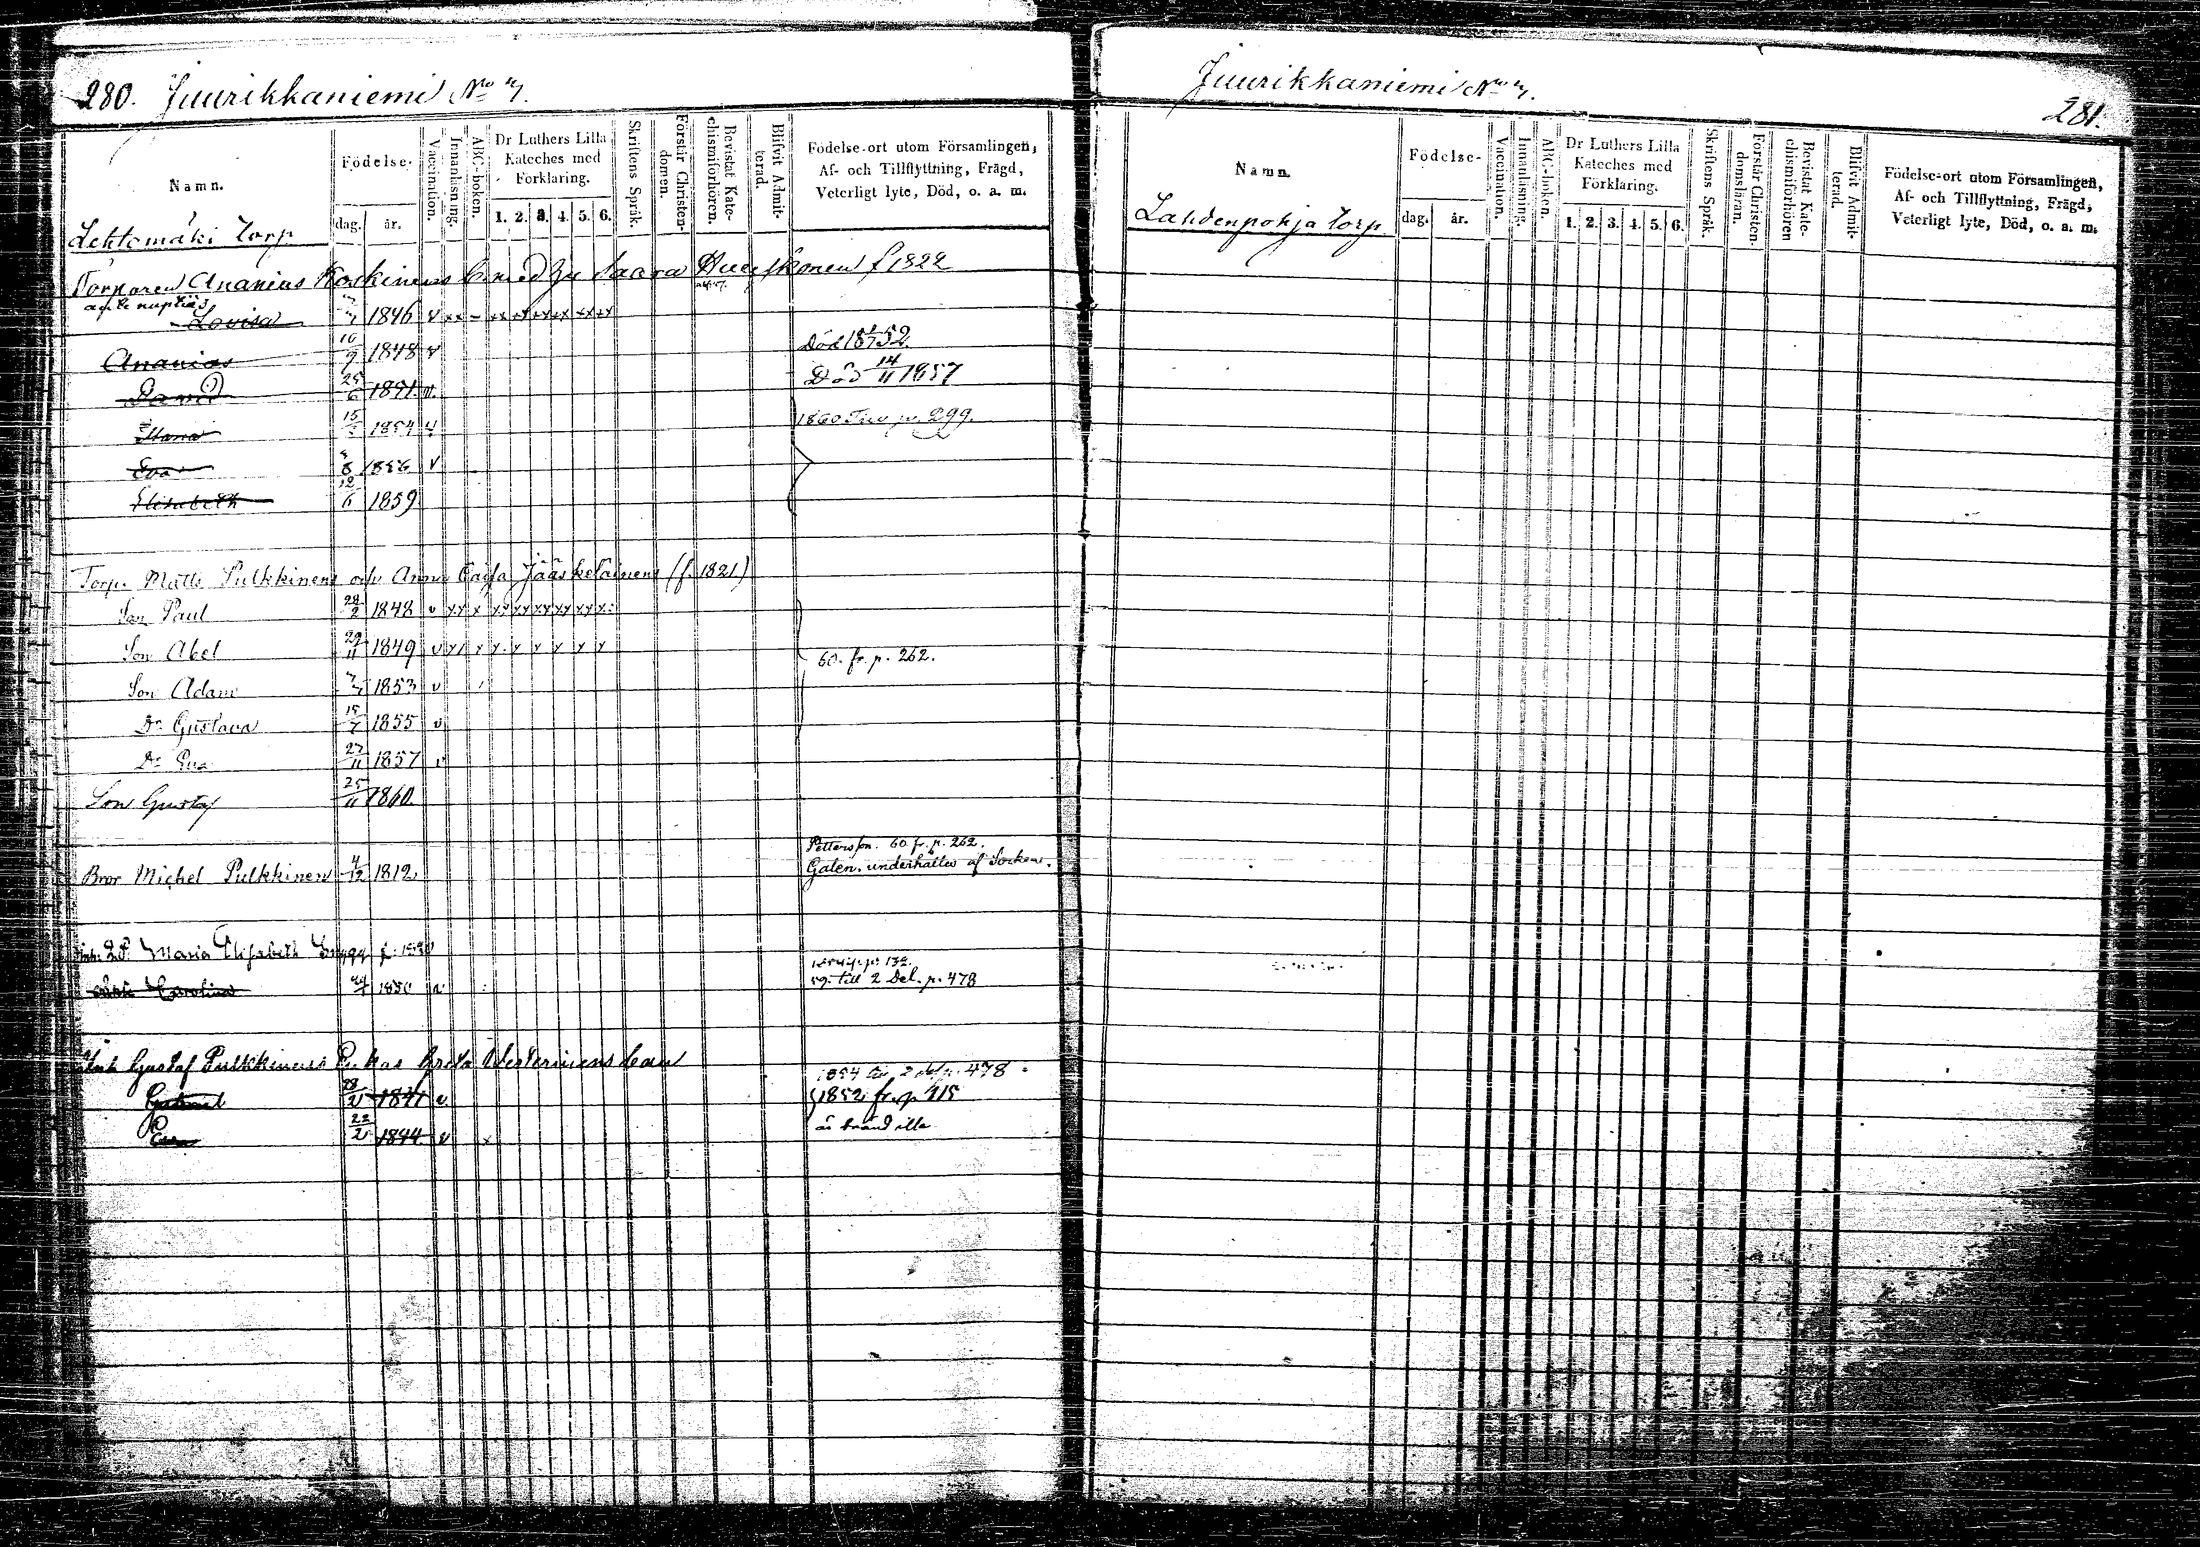 280. Juurikkaniemi No 7.
Namn.
Födelse-
dag. år.
Vaccination.
Innanläsning.
ABC-boken.
Dr Luthers Lilla Kateches med Förklaring.
1. 2. 3. 4. 5. 6.
Skriftens Språk.
Förstår Christendomen.
Bevistat Katechismiförhören.
Blifvit Admitterad.
Födelse-ort utom Församlingen, Af- och Tillflyttning, Frägd, Veterligt lyte, Död, o. a. m.
Lehtomäki Torp
Torparen Ananias Koskinens b. med hu Saara f 1822
ante nuptias
Lovisa 7/7 1846 v xx - xx xx xx xx xx xx
Ananias 10/9 1848 v Död 1852
David 25/6 1851 Död 14/11 1857
15 1854 1860 p. 299.
Eva 8 1856 v
Elisabeth 12/6 1859
Torp. Matts Pulkkinens och Anna Caisa Jääskeläinens (f. 1821)
Son Paul 28/2 1848 v xx x xx xx xx xx xx x
Son Abel 29/11 1849 v x x x x x x x 60. fr. p. 262.
Son Adam 7/7 1853 v
Dr Gustava 15/7 1855 v
Dr Eva 27/11 1857 v
Son Gustaf 25/11 1860.
Pettersson. 60 fr. p. 262.
Bror Michel Pulkkinen 4/12 1812 Galen. underhålles af Socken.
Maria Elisabeth
p. 132.
Carolina 1850 59. till 2 Del. p. 478
Gustaf Pulkkinens Greta Westerinens barn
1854 2 del p. 478
Gabriel 28/2 1841 v 1852 fr. p 415
Eva 22/2 1844 v x är bränd illa
Juurikkaniemi No 7.
281.
Namn.
Födelse-
dag. år.
Vaccination.
Innanläsning.
ABC-boken.
Dr Luthers Lilla Kateches med Förklaring.
1. 2. 3. 4. 5. 6.
Skriftens Språk.
Förstår Christendomsläran.
Bevistat Katechismiförhören
Blifvit Admitterad.
Födelse-ort utom Församlingen, Af- och Tillflyttning, Frägd, Veterligt lyte, Död, o. a. m.
Lahdenpohja Torp